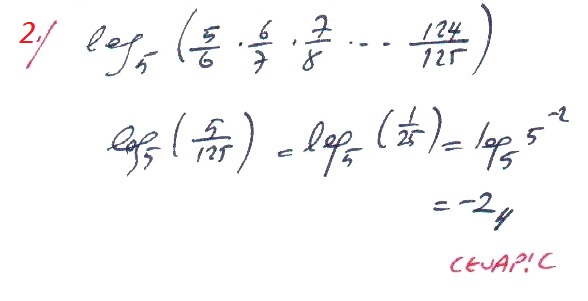 2./ log₅ (5/6 · 6/7 · 7/8 · -- 124/125)
log₅ (5/125) = log₅ (1/25) = log₅ 5⁻²
= -2//
CEVAP: C